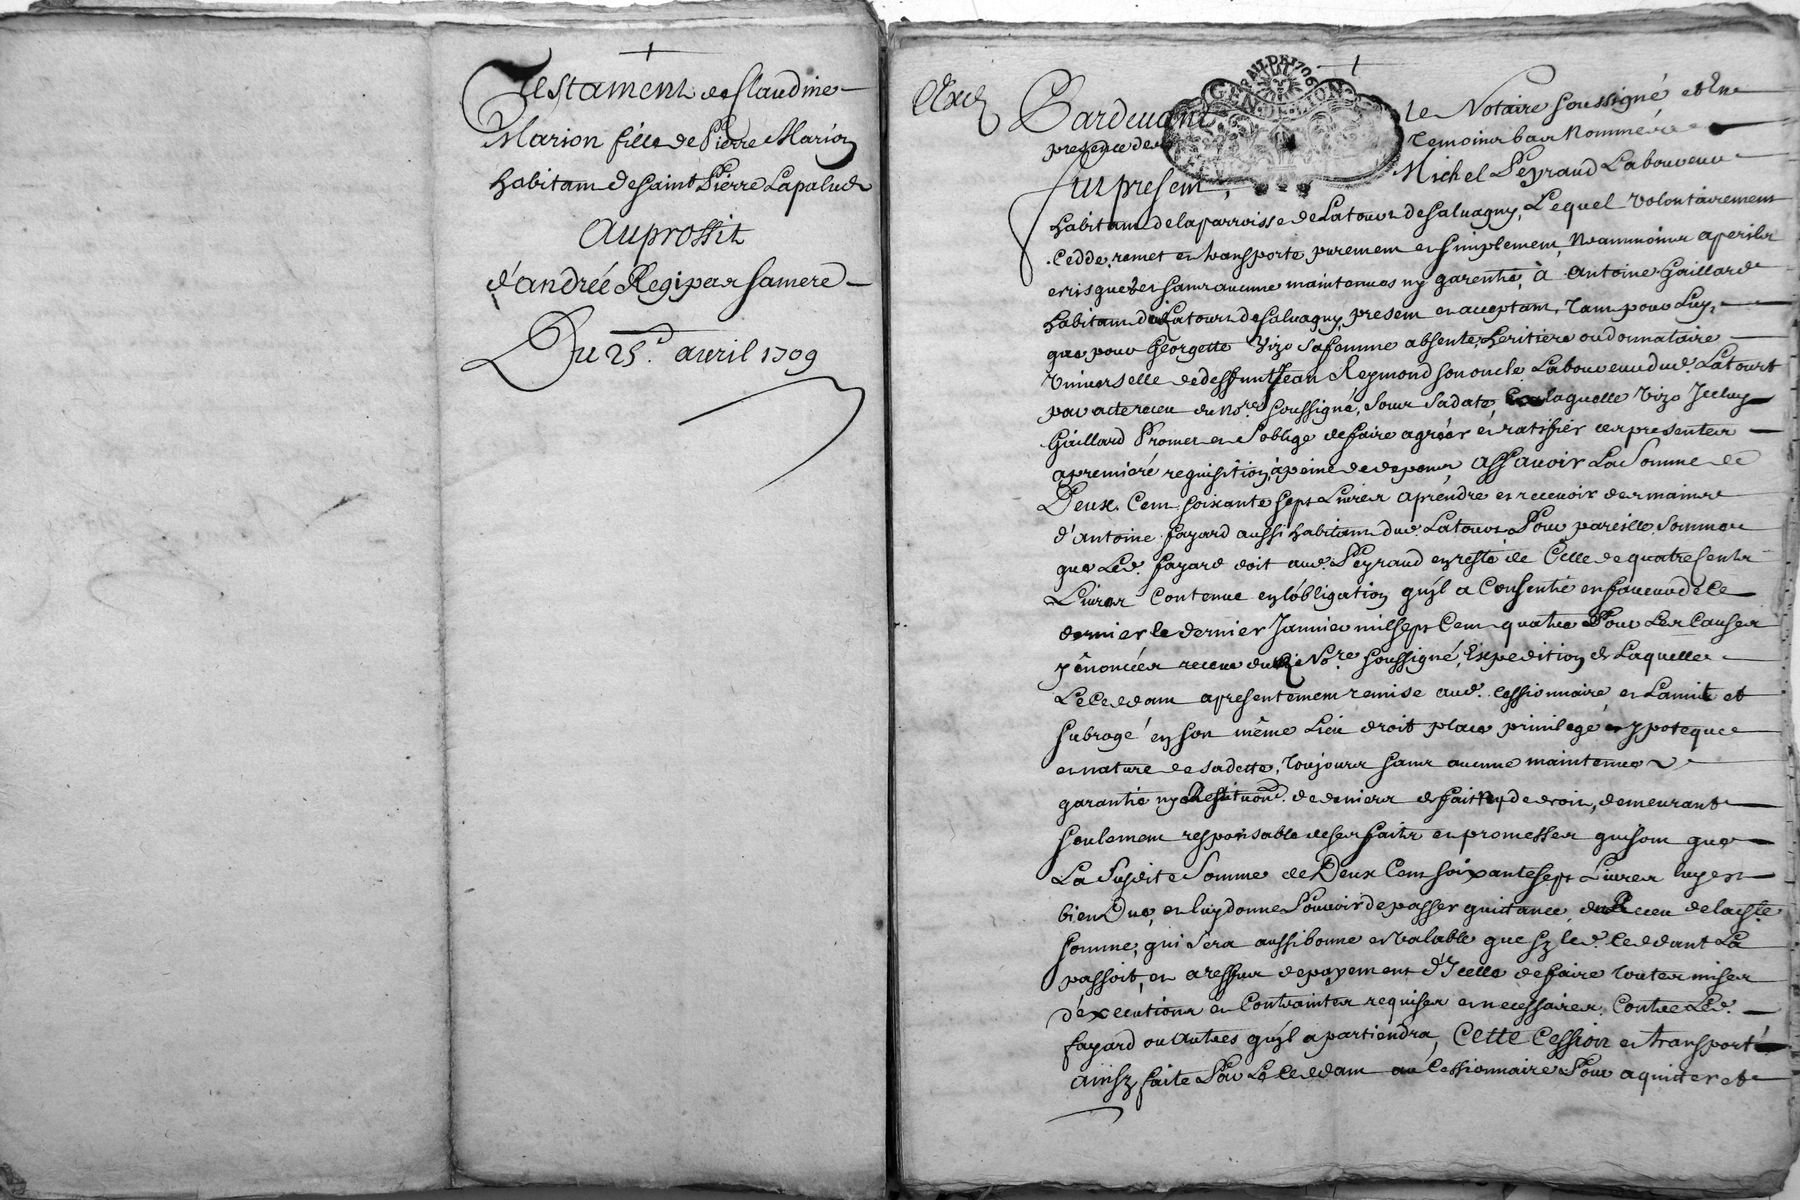 Testament de Claudine
Marion fille de Pierre Marion
habitant de Saint Pierre Lapalud
Au proffit
d'andreé Regipas sa mere
Du 25e. avril 1709
Exed
GEN DE LION
GENERALI DE 1706
Pardevant le Notaire soussigné et en
presence des temoins bas nommés
fut present, Michel Peyraud Laboureur
habitant de la parroisse de Latour de Salvagny, Lequel volontairement
cedde, remet et transporte purement et simplement, Neammoins a perils
et risques et sans aucune maintenue ny garentie, à Antoine Gaillard
habitant dud Latour de Salvagny, present et acceptant, tant pour Luy,
que pour Georgette Vizo sa femme absente, heritiere ou donnataire
universelle de deffunt Jean Reymond son oncle Laboureur dud. Latour
par acte receu du Nore. soussigné, sous sa date, laquelle Vizo Iceluy
Gaillard Promet et s'oblige de faire agréer et ratiffier ces presentes
a premiere requisition, a peine de depens Assavoir La Somme de
Deux Cent soixante sept Livres a prendre et recevoir des mains
d'antoine fayard aussi habitant dud Latour Pour pareille Somme
que Led. fayard doit aud. Peyraud en reste de Celle de quatre cents
Livres Contenue en l'obligation qu'il a Consentie en faveur de Ce
dernier le dernier Janvier mil sept Cent quatre Pour Les Causes
y énoncées receue dud Nore. soussigné, Expedition de Laquelle
Le Ceddant a presentement remise aud. Cessionnaire et L'a mit et
subrogé en son même Lieu droit place privilege et ypoteque
et nature de sa dette, toujours sans aucune maintenue
garantie ny Restituon. de deniers de fait ny de droit, demeurant
seulement responsable de ses faits et promesses qui sont que
La Susdite Somme de Deux Cent soixante sept Livres luy est
bien Due, et luy donne Pouvoir de passer quittance, du Receu de lad.te
somme, qui sera aussi bonne et valable que sy led. Ceddant La
passoit, et a reffus de payement d'Icelle de faire toutes mises
d'éxecutions et Contraintes requises et necessaires Contre Led.
fayard ou Autres qu'il apartiendra, Cette Cession et transport
ainsy faite Par Le Ceddant au Cessionnaire Pour aquiter et